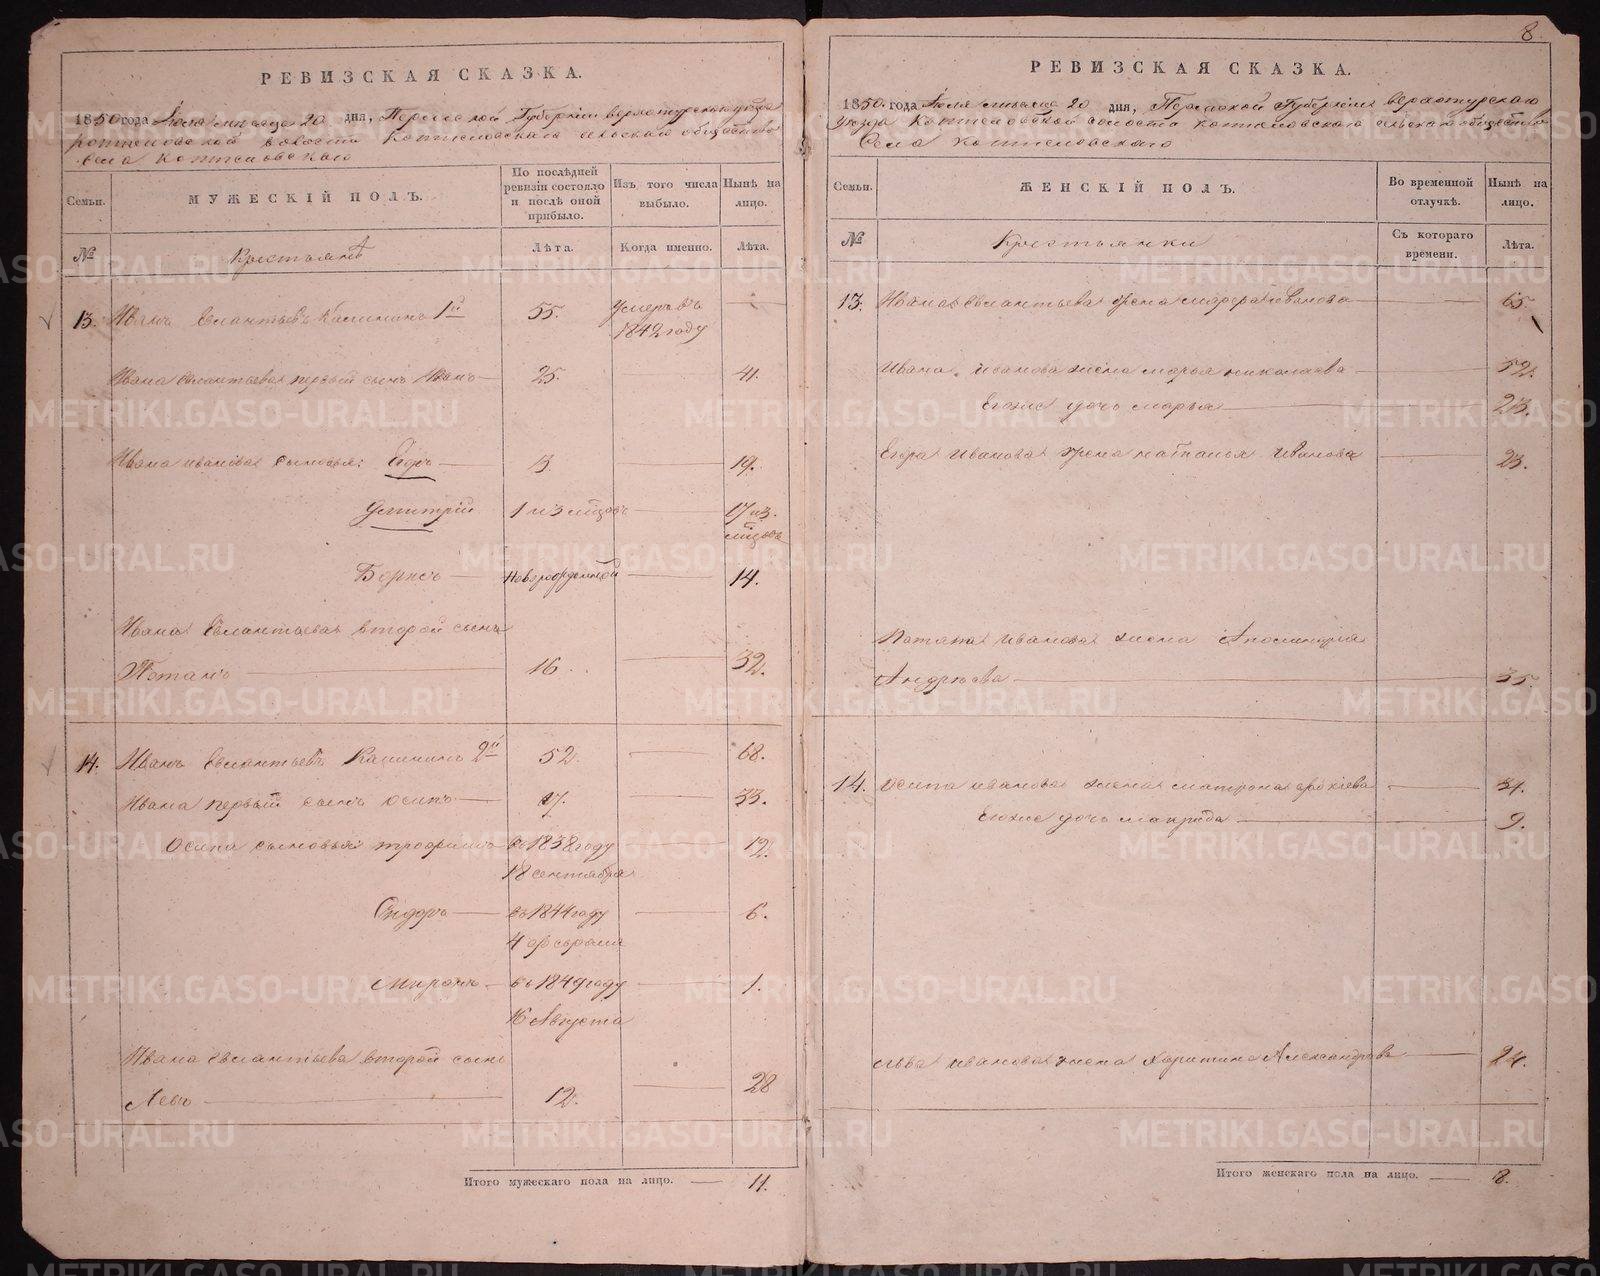 РЕВИЗСКАЯ СКАЗКА.
1850 года Іюля мѣсяца 20 дня, Пермской Губерніи Верхотурскаго уѣзда
Коптеловской волости Коптеловскаго сельскаго общества
Села Коптеловскаго
Семьи.
МУЖЕСКІЙ ПОЛЪ.
По послѣдней ревизіи состояло и послѣ оной прибыло.
Изъ того числа выбыло.
Нынѣ на лицо.
№
Крестьянъ
Лѣта.
Когда именно.
Лѣта.
13. Иванъ Евлантьевъ Калининъ 1й 55. Умеръ въ 1842 году —
Ивана Евлантьева первый сынъ Иванъ — 25. — 41.
Ивана Иванова сыновья: Егоръ — 3 — 19.
Дмитрій 1 и 3 мѣсяцовъ — 17 и 3. мѣсяцов
Борисъ — новорожденной — 14.
Ивана Евлантьева второй сынъ
Потапъ — 16. — 32.
14. Иванъ Евлантьевъ Калининъ 2й 52. — 68.
Ивана первый сынъ Осипъ — 17. — 33.
Осипа сыновья: Трофимъ въ 1838 году — 12.
18 сентября
Ѳедоръ — въ 1844 году — 6.
4 февраля
Миронъ — въ 1849 году — 1.
16 Августа
Ивана Евлантьева второй сынъ
Левъ — 12. — 28
Итого мужескаго пола на лицо. — 11.
8
РЕВИЗСКАЯ СКАЗКА.
1850. года Іюля мѣсяца 20 дня, Пермской Губерніи Верхотурскаго
уѣзда Коптеловской волости Коптеловскаго сельскаго общества
Села Коптеловскаго
Семьи.
ЖЕНСКІЙ ПОЛЪ.
Во временной отлучкѣ.
Нынѣ на лицо.
№
Крестьянки
Съ котораго времени.
Лѣта.
13. Ивана Евлантьева жена Марфа Иванова — 65.
Ивана Иванова жена Марья Николаева — 52.
Егоже дочь Марья — 23.
Егора Иванова жена Наталья Иванова — 23.
Потапа Иванова жена Аполинарія
Андреева — 35.
14. Осипа Иванова жена Матрона — 34.
Егоже дочь Макрида — 9.
Льва Иванова жена Харитина Александрова — 24.
Итого женскаго пола на лицо. — 8.
METRIKI.GASO-URAL.RU